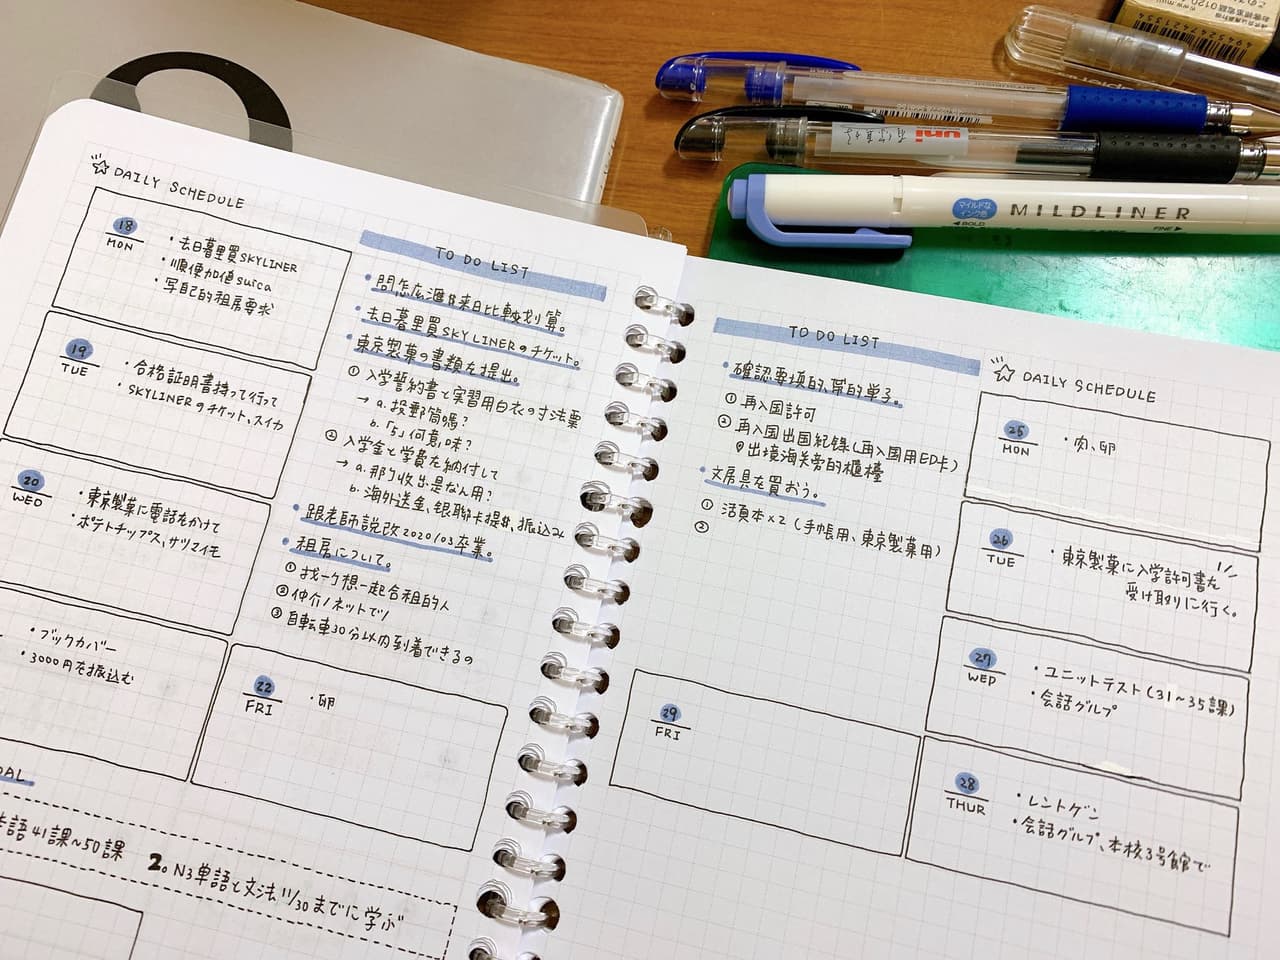 DAILY SCHEDULE
18
MON
・去日暮里買SKYLINER
・順便加值suica
・写自己的租房要求
19
TUE
・合格証明書持って行って
・SKYLINERのチケット、スイカ
20
WED
・東京製菓に電話をかけて
・ポテトチップス、サツマイモ
・ブックカバー
・3000円を振込む
22
FRI
・卵
TO DO LIST
・問怎広滙日来日比較划算。
・去日暮里買SKYLINERのチケット。
・東京製菓の書類を提出。
① 入学誓約書と実習用白衣の寸法票
→ a. 投郵筒嗎?
b.「5」何意味?
② 入学金と学費を納付して
→ a. 那个收出是なん用?
b. 海外送金、银联卡提、振込み
・跟老師説改2020/03卒業。
・租房について。
① 找一个想一起合租的人
② 仲介/ネットで
③ 自転車30分以内到着できるの
語41課~50課
2. N3単語と文法11/30までに学ぶ
TO DO LIST
・確認要项的、保的单子。
① 再入国許可
② 再入国出国紀録(再入国用ED卡)
出境海关旁的櫃檯
・文房具を買おう。
① 活頁本x2(手帳用、東京製菓用)
②
29
FRI
DAILY SCHEDULE
25
MON
・肉、卵
26
TUE
・東京製菓に入学許可書を
受け取りに行く。
27
WED
・ユニットテスト(31~35課)
・会話グルプ
28
THUR
・レントゲン
・会話グルプ、本校3号館で
uni
マイルドな
インク色
MILDLINER
◀BOLD
FINE▶
4945247421354